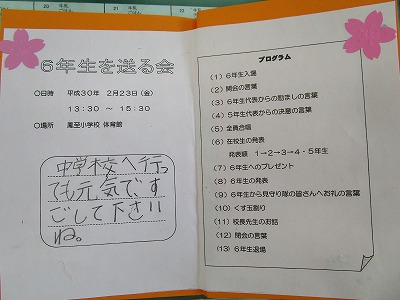 6年生を送る会
○日時　平成30年 2月23日(金)
13:30 ～ 15:30
○場所　鳳至小学校 体育館
中学校へ行っ
ても元気です
ごして下さい
ね。
プログラム
(1) 6年生入場
(2) 開会の言葉
(3) 6年生代表からの励ましの言葉
(4) 5年生代表からの決意の言葉
(5) 全員合唱
(6) 在校生の発表
発表順　1→2→3→4・5年生
(7) 6年生へのプレゼント
(8) 6年生の発表
(9) 6年生から見守り隊の皆さんへお礼の言葉
(10) くす玉割り
(11) 校長先生のお話
(12) 閉会の言葉
(13) 6年生退場